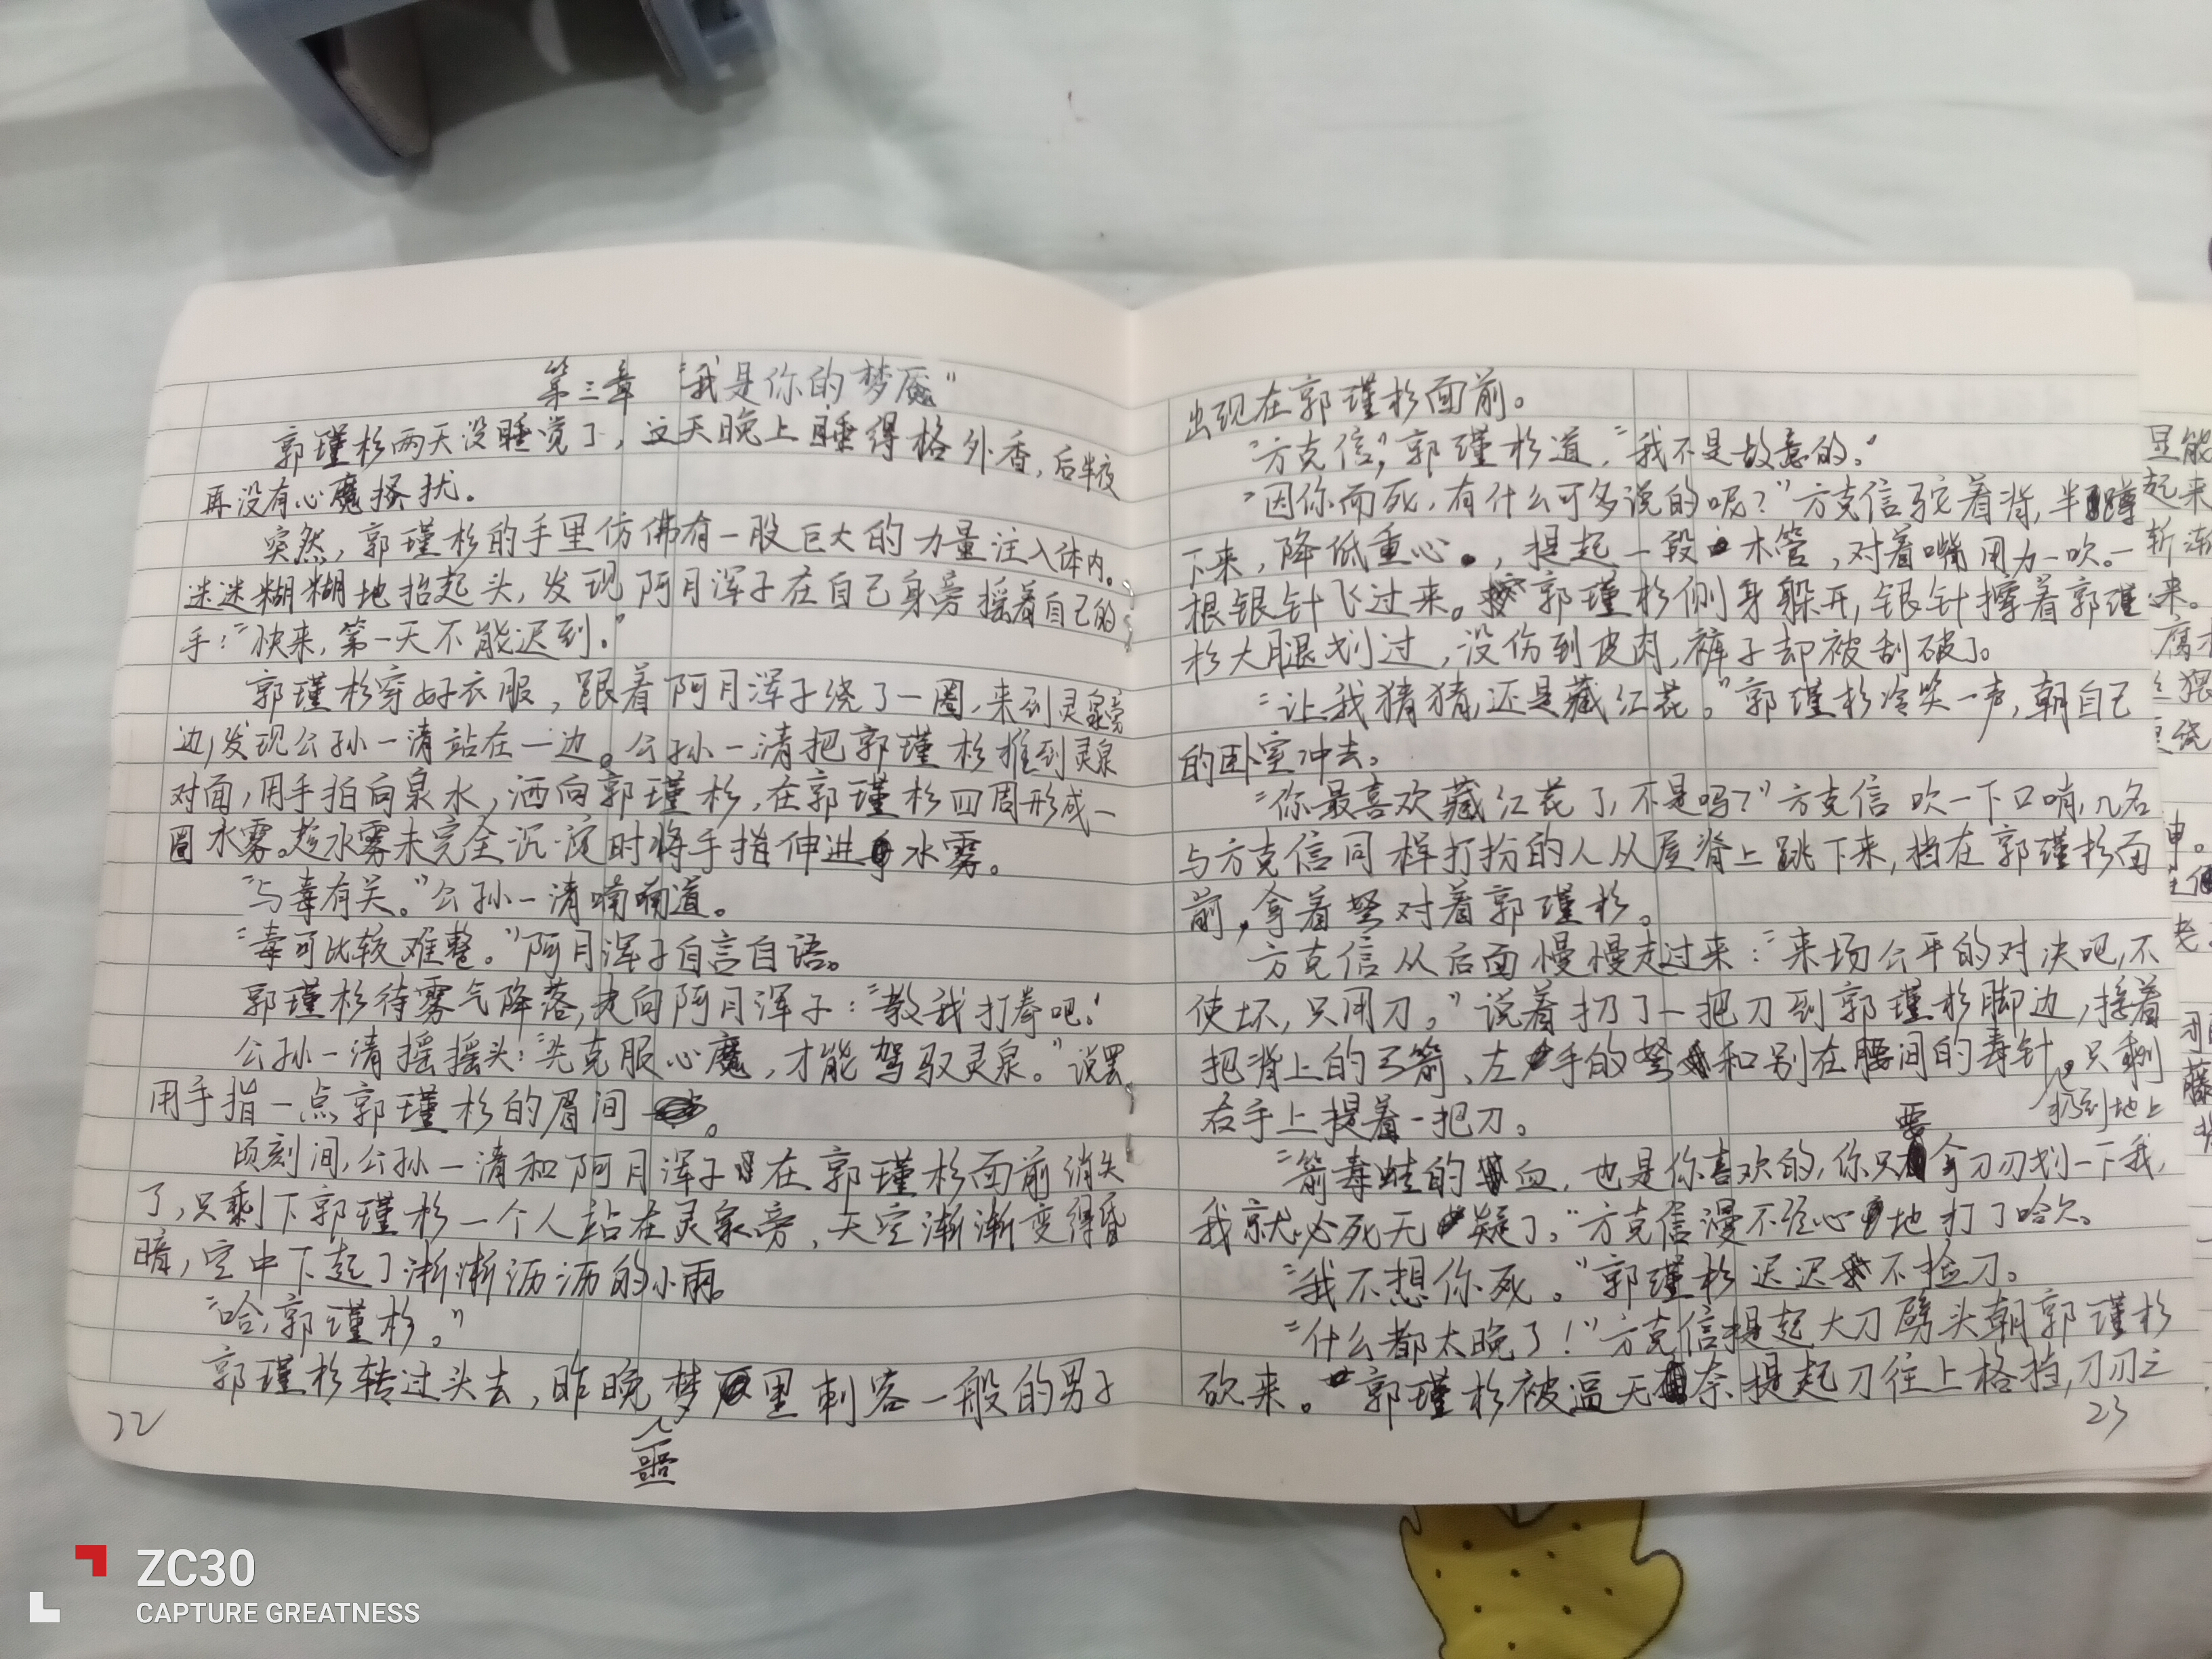 第三章 “我是你的梦魇”
郭瑾杉两天没睡觉了，这天晚上睡得格外香，后半夜
再没有心魔搔扰。
突然，郭瑾杉的手里仿佛有一股巨大的力量注入体内。
迷迷糊糊地抬起头，发现阿月浑子在自己身旁摇着自己的
手：“快来，第一天不能迟到。”
郭瑾杉穿好衣服，跟着阿月浑子绕了一圈，来到灵泉旁
边，发现公孙一清站在一边。公孙一清把郭瑾杉推到灵泉
对面，用手拍向泉水，洒向郭瑾杉，在郭瑾杉四周形成一
圈水雾。趁水雾未完全沉淀时将手指伸进水雾。
“与毒有关。”公孙一清喃喃道。
“毒可比较难整。”阿月浑子自言自语。
郭瑾杉待雾气降落，走向阿月浑子：“教我打拳吧。”
公孙一清摇摇头：“先克服心魔，才能驾驭灵泉。”说罢
用手指一点郭瑾杉的眉间。
顷刻间，公孙一清和阿月浑子在郭瑾杉面前消失
了，只剩下郭瑾杉一个人站在灵泉旁，天空渐渐变得昏
暗，空中下起了淅淅沥沥的小雨。
“哈，郭瑾杉。”
郭瑾杉转过头去，昨晚噩梦里刺客一般的男子
22
出现在郭瑾杉面前。
“方克信，”郭瑾杉道，“我不是故意的。”
“因你而死，有什么可多说的呢？”方克信驼着背，半蹲
下来，降低重心，提起一段木管，对着嘴用力一吹。一
根银针飞过来。郭瑾杉侧身躲开，银针擦着郭瑾
杉大腿划过，没伤到皮肉，裤子却被刮破了。
“让我猜猜，还是藏红花。”郭瑾杉冷笑一声，朝自己
的卧室冲去。
“你最喜欢藏红花了，不是吗？”方克信吹一下口哨，几名
与方克信同样打扮的人从屋脊上跳下来，挡在郭瑾杉面
前，拿着弩对着郭瑾杉。
方克信从后面慢慢走过来：“来场公平的对决吧，不
使坏，只用刀。”说着扔了一把刀到郭瑾杉脚边，接着
把背上的弓箭、左手的弩和别在腰间的毒针扔到地上。只剩
右手上提着一把刀。
“箭毒蛙的血，也是你喜欢的，你只要拿刀刃划一下我，
我就必死无疑了。”方克信漫不经心地打了哈欠。
“我不想你死。”郭瑾杉迟迟不捡刀。
“什么都太晚了！”方克信提起大刀劈头朝郭瑾杉
砍来。郭瑾杉被逼无奈提起刀往上格挡，刀刃之
23
ZC30
CAPTURE GREATNESS